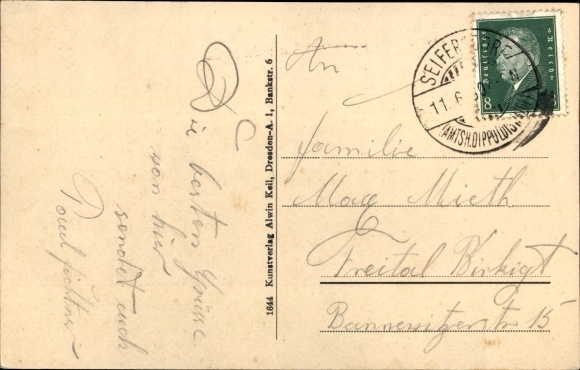 Die besten Grüsse
von hier
sendet euch
Paul
1644 Kunstverlag Alwin Keil, Dresden-A. 1, Bankstr. 6
An
Familie
Max Mieth
Freital Birkigt
Bannewitzerstr 15
SEIFERS
11.6.30
(AMTSH. DIPPOLDIS
Deutsches Reich
8